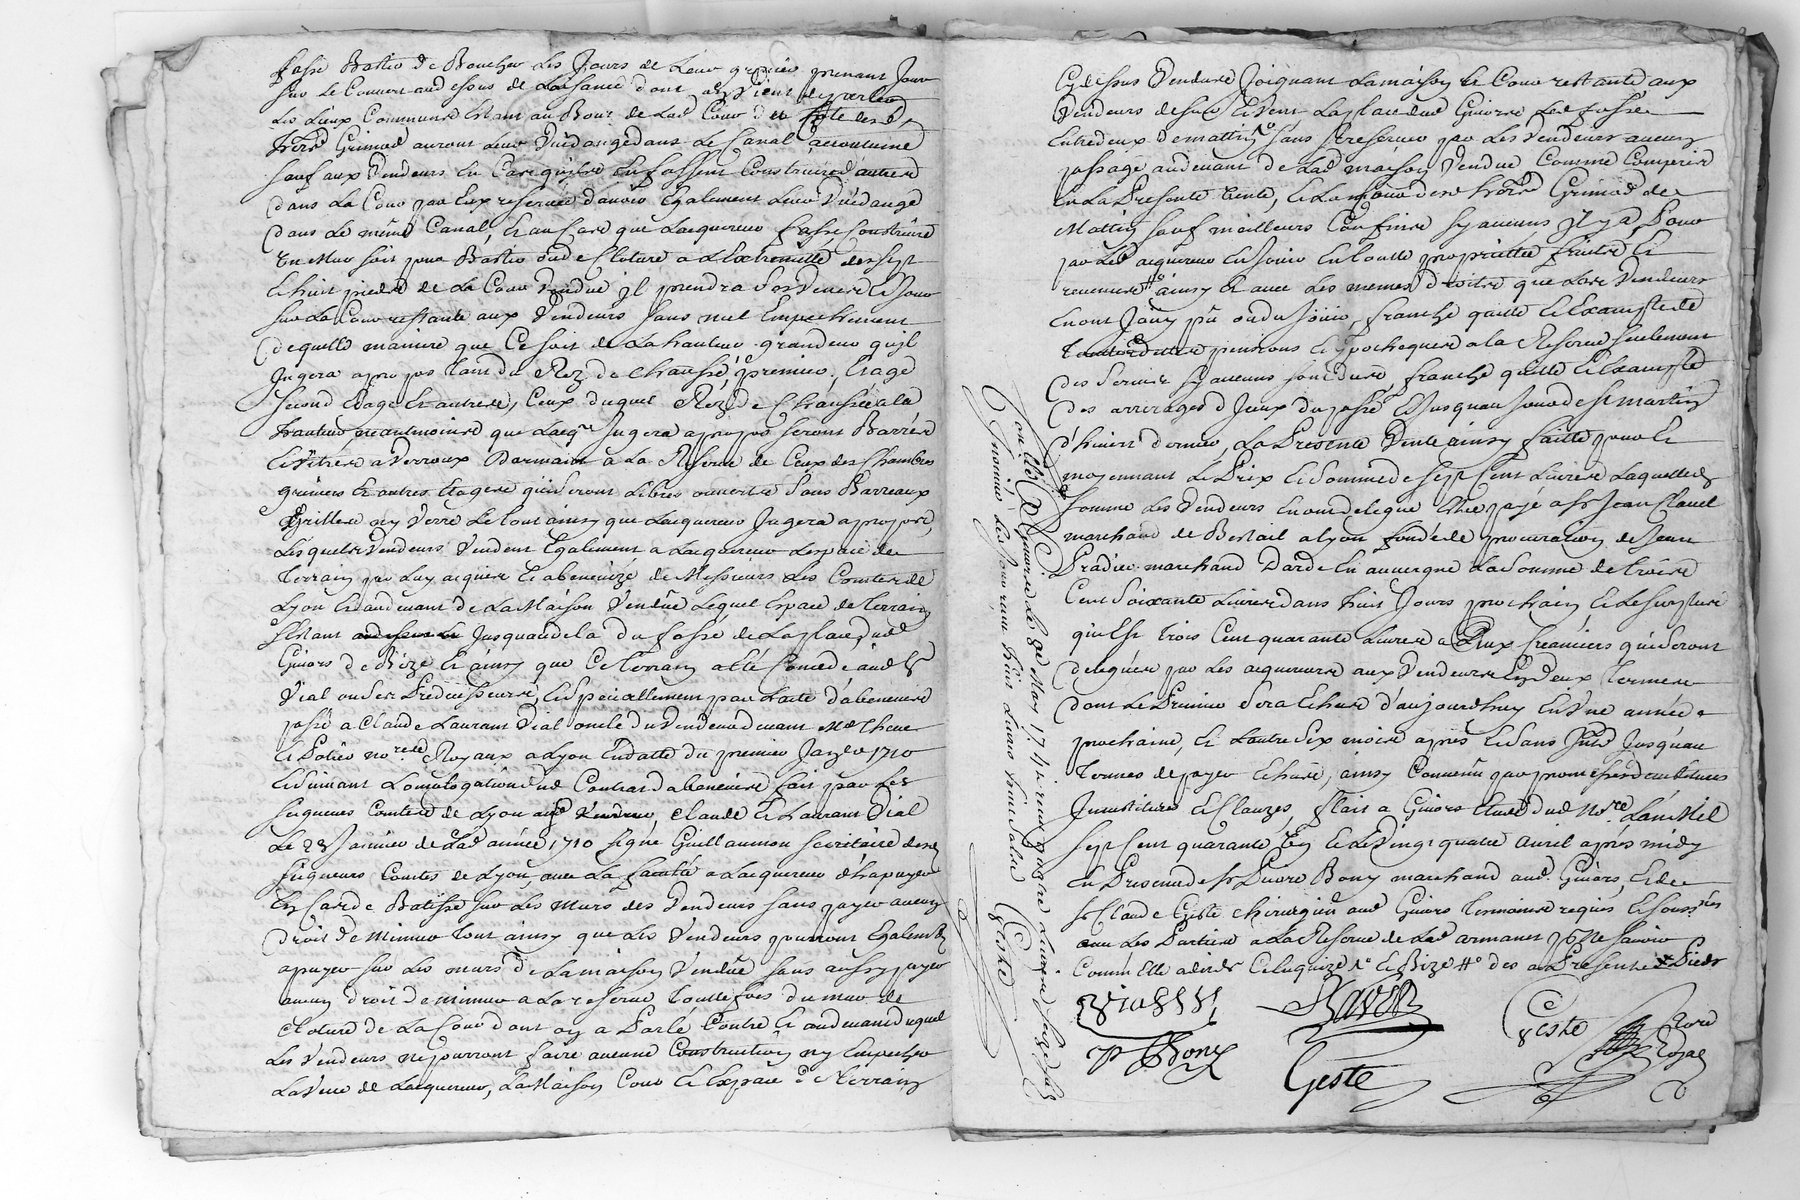 fasse Bastir de Boucher les Jours de Leur grenier prenant Jour
sur Le Couvert au dessous de
Les Lieux Communs Estant au Bout de Lad Cour
frere Grimod auront leur Vuidange dans Le Canal accoutumé
sauf aux Vendeurs En Cas qu'ils En fassent Construire d'autres
Dans La Cour par Eux reservée d'avoir Egalement Leur Vuidange
Dans Le même Canal, Et au Cas que Lacquereur fasse Construire
Un Mur soit pour Bastir ou de Cloture a L'Extremitté des sept
Et huit pieds de La Cour Vendue il prendra Ses Veues Et Jour
sur La Cour restante aux Vendeurs sans nul Empechement
De quelle maniere que Ce soit de La hauteur grandeur qu'il
Jugera apropos tant du Rez de Chaussé, premier Etage
second Etage Et autres, Ceux duquel Rez de Chaussée a la
hauteur neantmoins que Lacqr Jugera apropos seront Barrés
Et Vitrés a Verroux Dormant a La Reserve de Ceux des Chambres
greniers Et autres Etages qui seront Libres ouvertes sans Barreaux
Grilles ny Verre Le tout ainsy que Lacquereur Jugera apropos,
Lesquels Vendeurs Vendent Egalement a Lacquereur Lespace de
Terrain par Luy acquis Et abenevizé de Messieurs Les Comtes de
Lyon Et au devant de La Maison Vendüe Lequel Espace de Terrain
s'Estant Jusqu'au dela du fossé de La place dud
Givors de Bize Et ainsy que Ce terrain a Eté Concedé aud Sr
Vial ou Ses Predecesseurs, Et Specialement par L'acte d'abenevis
passé a Claude Laurant Vial oncle du Vendeur devant Me Theve
Et Potier nores Royaux a Lyon En datte du premier Janvr 1710
Et Suivant Lomologation dud Contrat d'abenevis fait par les
seigneurs Comtes de Lyon aud Claude Et Laurant Vial
Le 23 Janvier de Lad année 1710 signé Guillaumon secretaire desd
seigneurs Comtes de Lyon, avec La facultté a Lacquereur d'apuyer
En Cas de Batisse sur Les Murs des Vendeurs sans payer aucun
Droit de Mimur tout ainsy que Les Vendeurs pourront Egalement
apuyer sur Les murs de La maison Vendüe sans aussy payer
aucun Droit de mimur a La reserve touttefois du mur de
Cloture de La Cour dont on a Parlé Contre Et au devant duquel
Les Vendeurs ne pourront faire aucune Construction ny Empecher
La Veue de Lacquereur, La Maison Cour Et Espace de Terrain
Cydessus Vendus Joignant La maison Et Cour restante aux
Vendeurs de soir Et Vent La place dud Givors Led fossé
Entredeux de mattin Sans Se reserver par Les Vendeurs aucun
passage au devant de Lad maison Vendue Comme Comprise
En La Presente Vente, Et La Maison des hoirs Grimod de
Mattin sauf meilleurs Confins sy aucuns Il y a, Pour
par Led acquereur En Jouir En toutte proprietté fruits Et
revenus ainsy Et avec Les memes Droits que Lesd Vendeurs
En ont Joüy pû ou dû Joüir, franche quitte Et Exempte de
Touttes dettes pensions Et Ypotheques a la Reserve seulement
Des Servis sy aucuns sont dues, franche quitte Et Exempte
Des arrerages d'Iceux du passé Et Jusqu'au Jour de St martin
d'hivers dernier, La Presente Vente ainsy faitte pour Et
moyennant Le Prix Et Somme de Sept Cent Livres Laquelle
Somme Les Vendeurs En ont delegué Etre payé a Sr Jean Clavel
marchand de Bestail a Lyon fondé de procuration de Jean
Pradier marchand Dardes En auvergne La Somme de trois
Cent Soixante Livres dans huit Jours prochain Et Le Surplus
qui Est trois Cent quarante Livres a Deux Creanciers qui Seront
Delegués par Les acquereurs aux Vendeurs En Deux Termes
Dont Le Premier Sera Echus d'aujourdhuy En Une année
prochaine, Et Lautre Six mois aprés Et Sans Jnts Jusqu'au
Termes de payer Echüs, ainsy Convenu par promesses devestitures
Jnvestitures Et Clauzes, Fait a Givors Etude dud Nore, Lan Mil
Sept Cent quarante Et Le Vingt quatre avril aprés midy
En Presence de Sr Pierre Bony marchand aud. Givors, Et de
Sr Claude Geste Chirurgien aud Givors Temoins requis Et Sousnés
avec Les Parties a La Reserve de Lad armanet po Ne Savoir
Comm Elle a dit de Ce Enquize
Conllé A Givors Le 8e May 174
Geste
Vialll
Clavel
P Bony
Geste
Geste
Nore
Royal